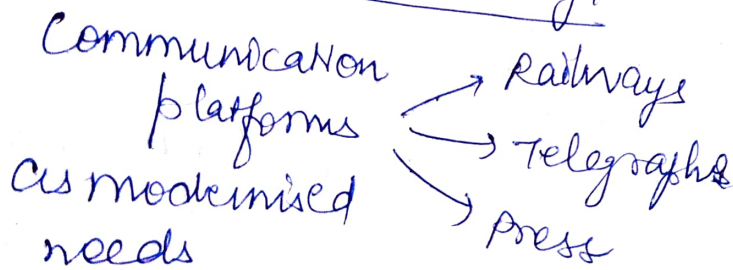 Communication
platforms
as modernised
needs
Railways
Telegraphs
Press